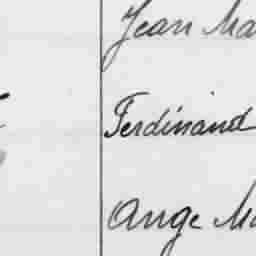 Jean Ma
Ferdinand
Ange Ma